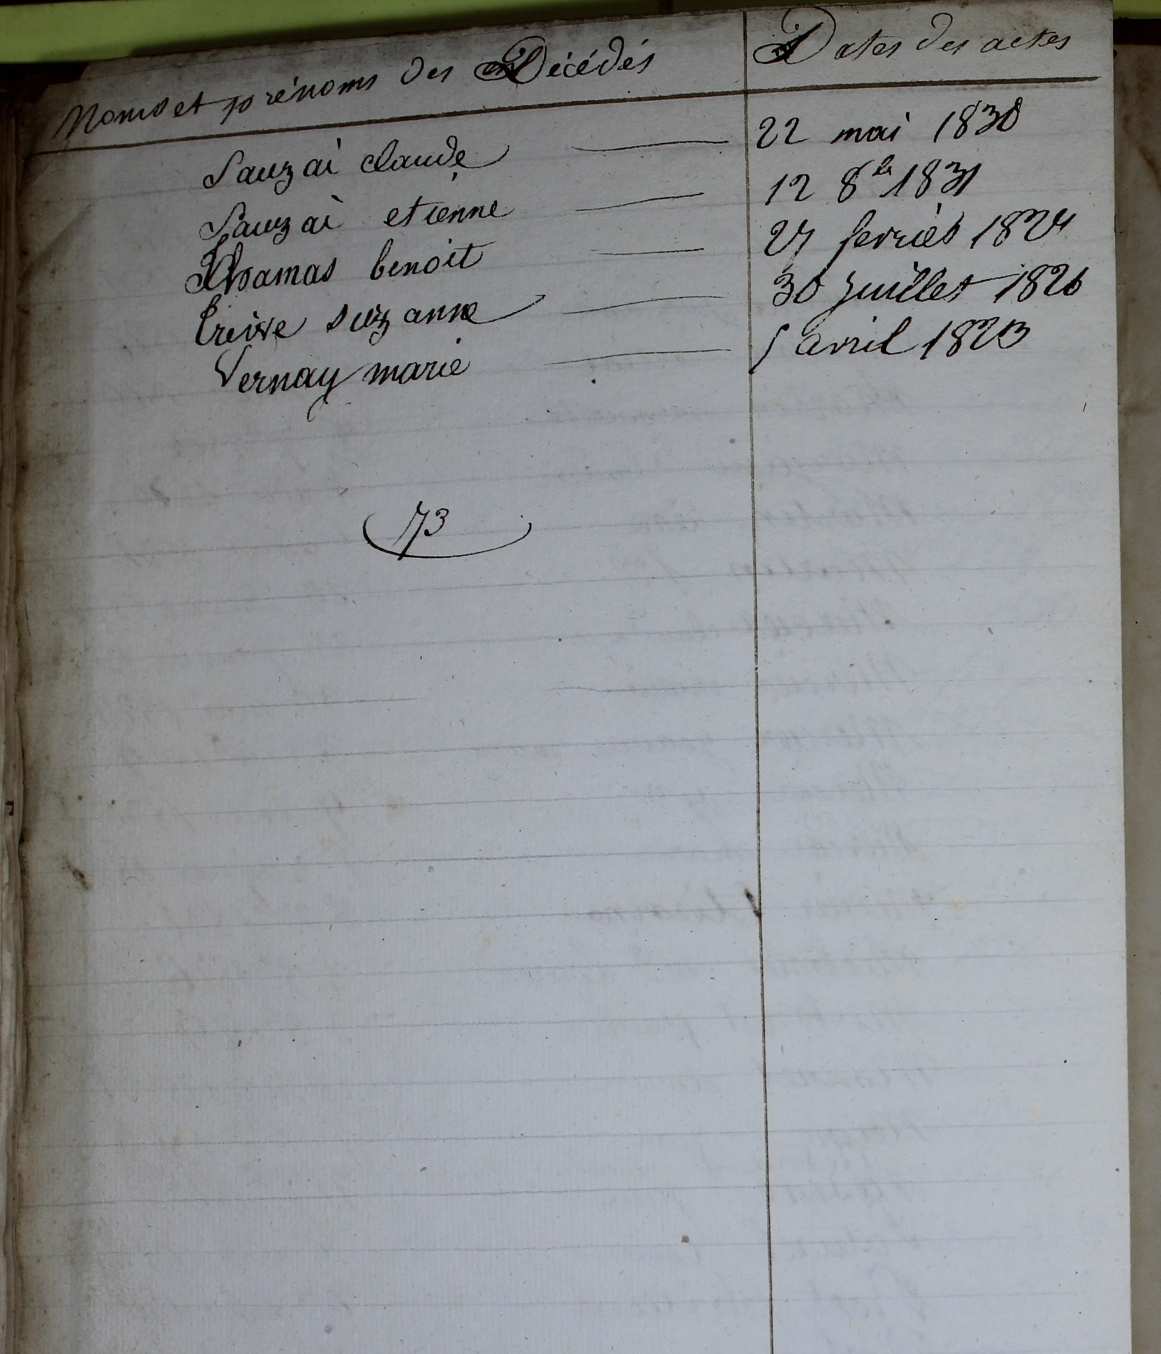 Noms et prénoms des Décédés Dates des actes
Sauzai claude 22 mai 1830
Sauzai etienne 12 8bre 1831
Thamas benoit 27 fevrier 1824
Treive suzanne 30 juillet 1826
Vernay marie 5 avril 1823
73